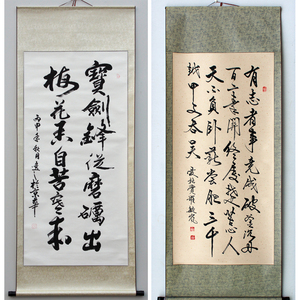 寶劍鋒從磨礪出
梅花香自苦寒來
丙申年秋月於京華
有志者事竟成破釜沉舟
百二秦關終屬楚苦心人
天不負臥薪嘗膽三千
越甲可吞吳